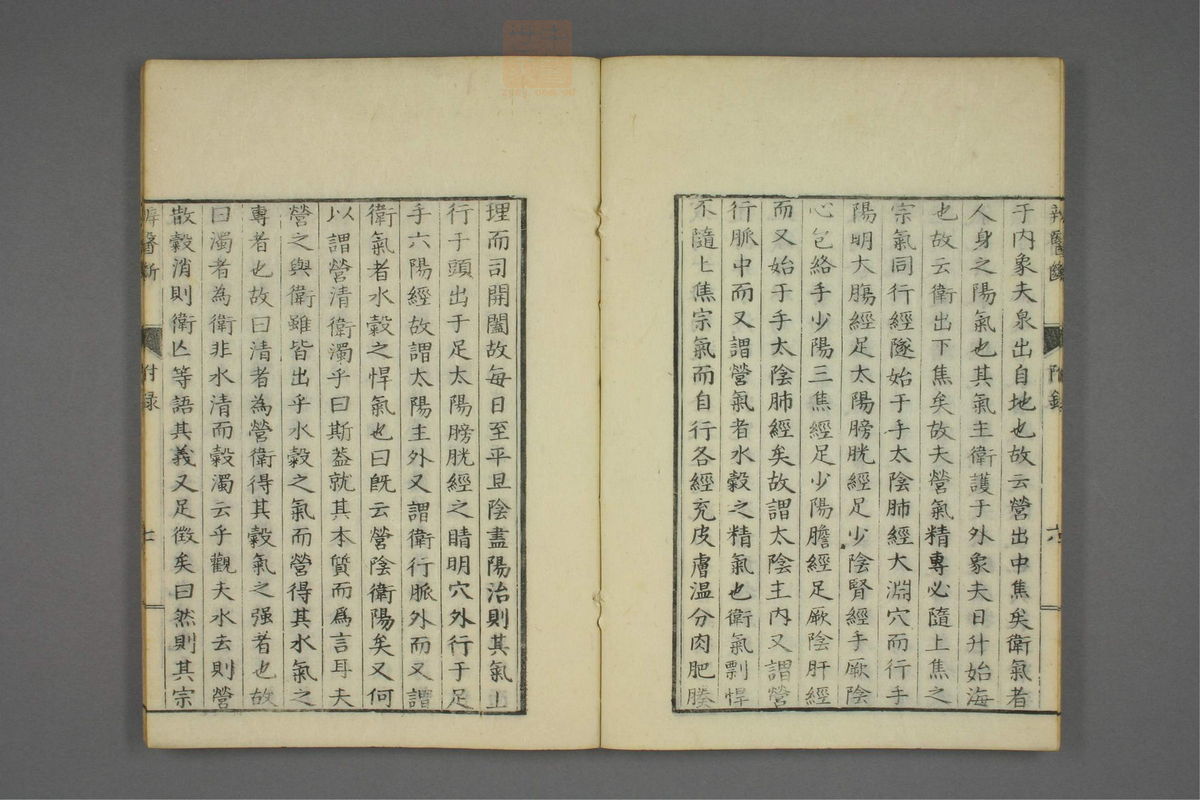 辨醫斷 附錄 六
于内象夫泉出自地也故云營出中焦矣衛氣者
人身之陽氣也其氣主衛護于外象夫日升始海
也故云衛出下焦矣故夫營氣精專必隨上焦之
宗氣同行經隧始于手太陰肺經大淵穴而行手
陽明大膓經足太陽膀胱經足少陰腎經手厥陰
心包絡手少陽三焦經足少陽膽經足厥陰肝經
而又始于手太陰肺經矣故謂太陰主内又謂營
行脈中而又謂營氣者水穀之精氣也衛氣剽悍
不隨上焦宗氣而自行各經充皮膚温分肉肥腠
理而司開闔故每日至平旦陰盡陽治則其氣上
行于頭出于足太陽膀胱經之睛明穴外行于足
手六陽經故謂太陽主外又謂衛行脈外而又謂
衛氣者水穀之悍氣也曰旣云營陰衛陽矣又何
以謂營清衛濁乎曰斯葢就其本質而爲言耳夫
營之與衛雖皆出乎水穀之氣而營得其水氣之
專者也故曰清者為營衛得其穀氣之强者也故
曰濁者為衛非水清而穀濁云乎觀夫水去則營
散穀消則衛亾等語其義又足徴矣曰然則其宗
辨醫斷 附録 七